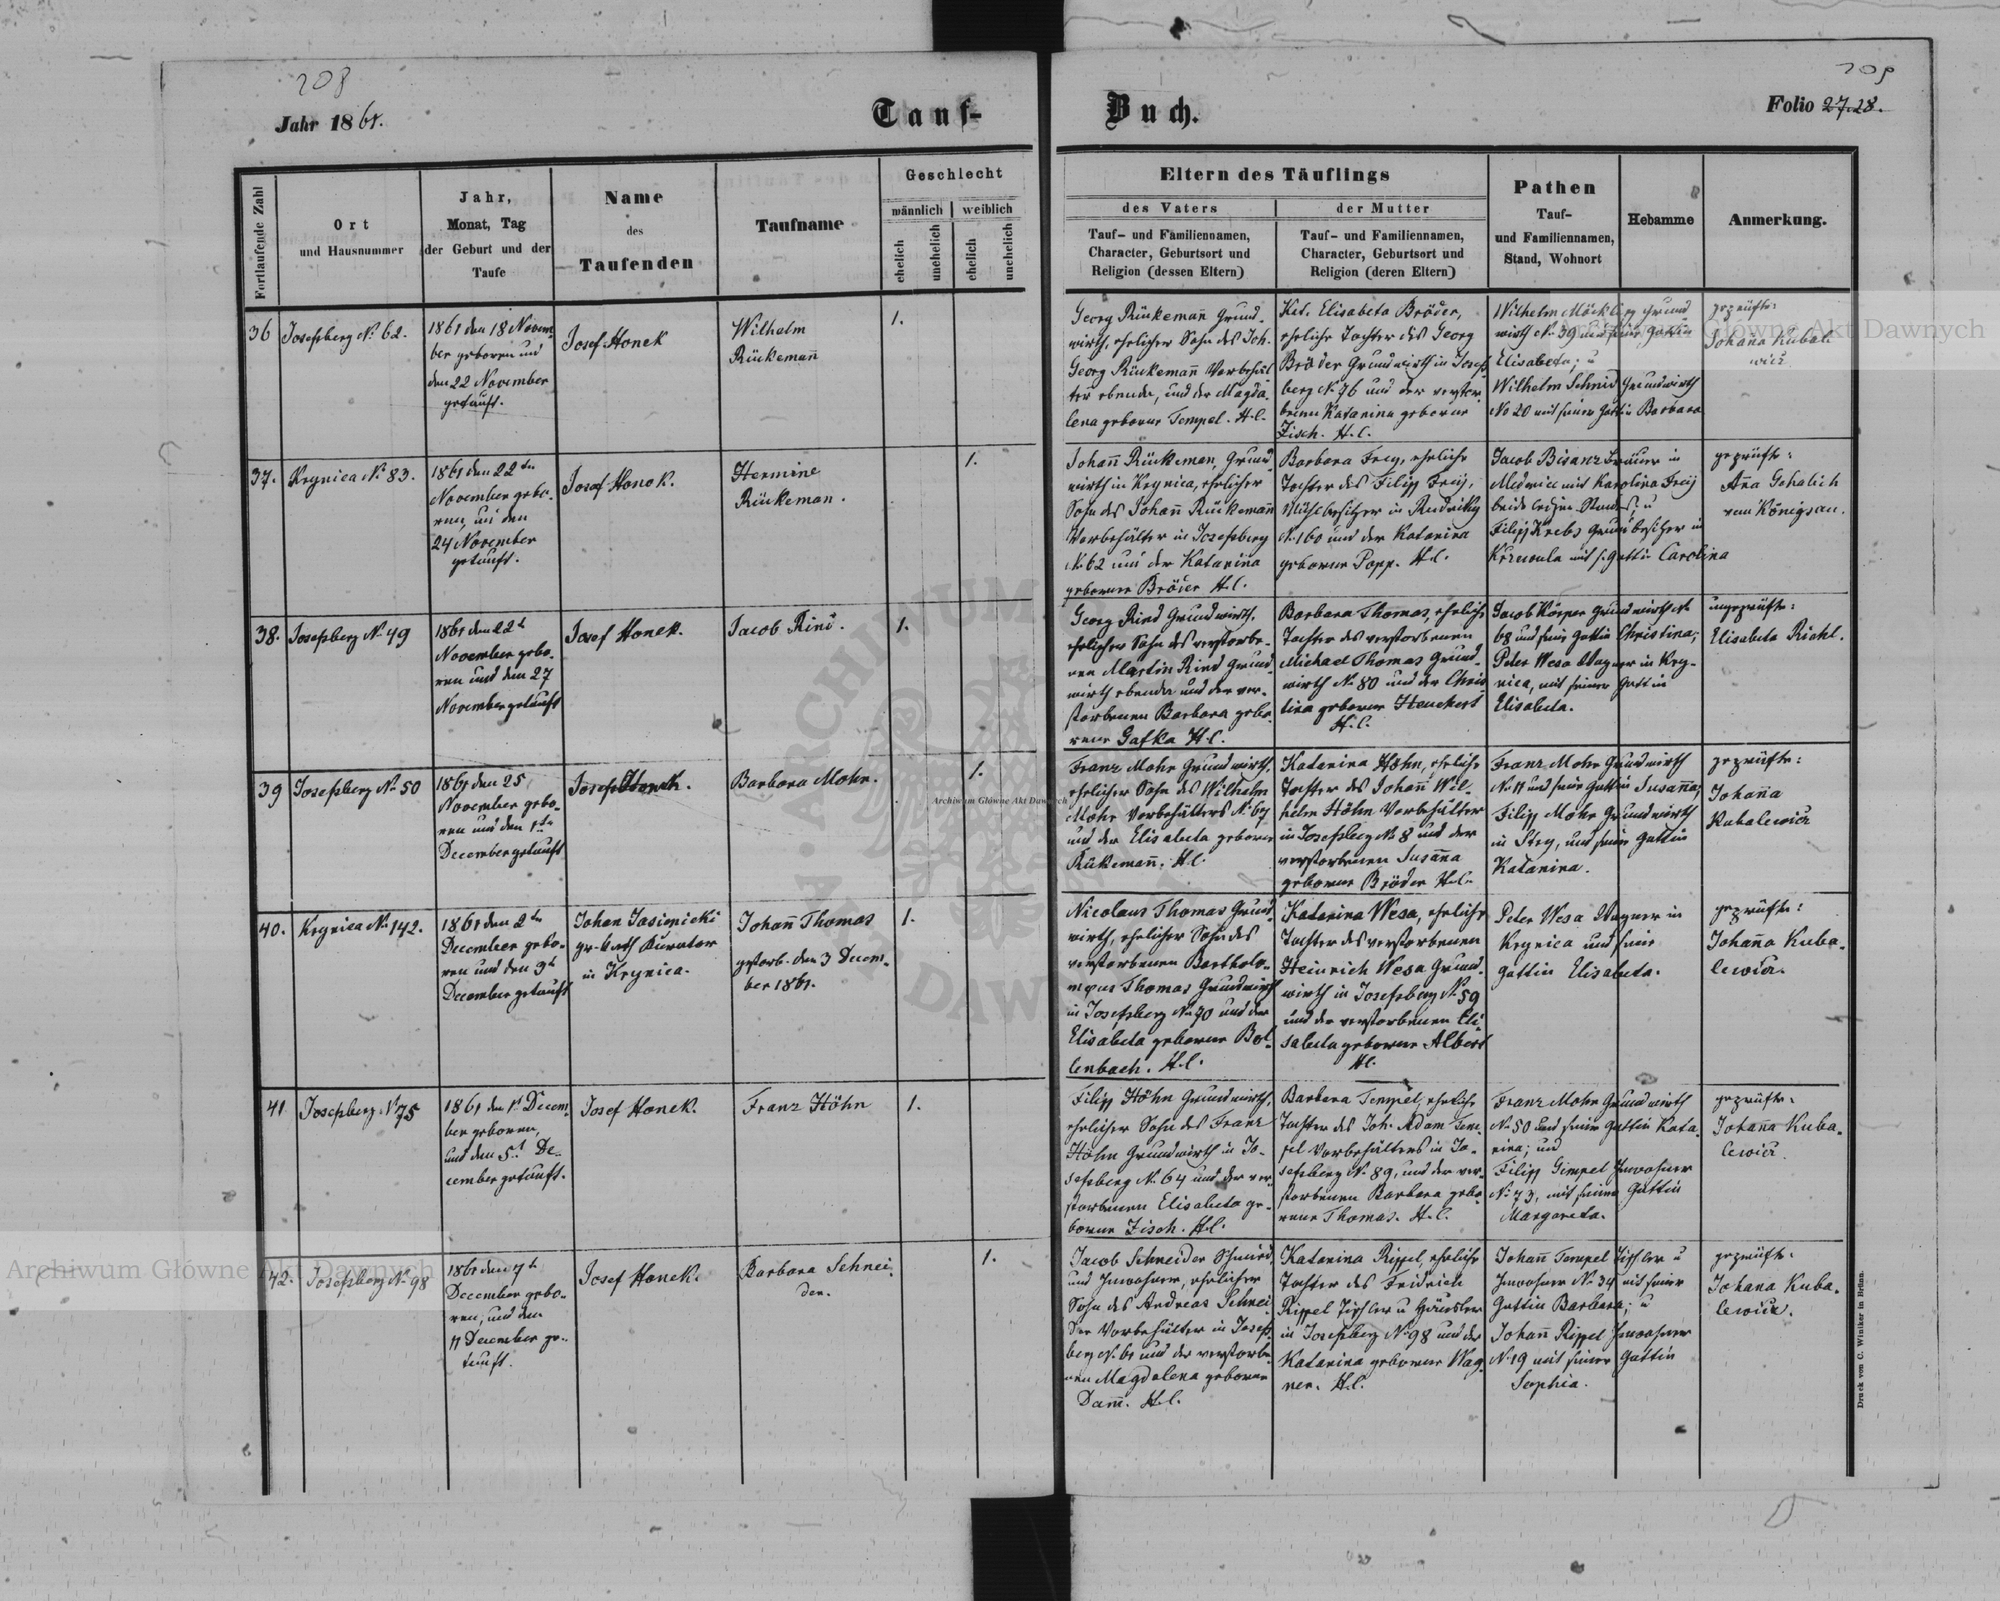 208
209
Jahr 1861.
Tauf-
Buch.
Folio 27.28.
Fortlaufende Zahl
Ort
und Hausnummer
Jahr,
Monat, Tag
der Geburt und der
Taufe
Name
des
Taufenden
Taufname
Geschlecht
männlich
weiblich
ehelich
unehelich
ehelich
unehelich
Eltern des Täuflings
des Vaters
Tauf- und Familiennamen,
Character, Geburtsort und
Religion (dessen Eltern)
der Mutter
Tauf- und Familiennamen,
Character, Geburtsort und
Religion (deren Eltern)
Pathen
Tauf-
und Familiennamen,
Stand, Wohnort
Hebamme
Anmerkung.
36
Josefsberg No 62.
1861 den 18 Novem-
ber geboren und
den 22 November
getauft.
Josef Honek
Wilhelm
Rückemañ
1.
Georg Rückemañ Grund-
wirth, ehelicher Sohn des Joh.
Georg Rückemañ Vorbehäl-
ter ebenda, und der Magda-
lena geborne Tempel. H.C.
Kat. Elisabeta Bröder,
eheliche Tochter des Georg
Bröder Grundwirth in Josefs-
berg No 76 und der verstor-
benen Katarina geborne
Zisch. H.C.
Wilhelm Möckli Grund
wirth No 39 und seine Gattin
Elisabeta; u
Wilhelm Schmid Grundwirth
No 20 mit seiner Gattin Barbara
geprüfte:
Johana Kubale
wicz
37.
Krynica No 83.
1861 den 22ten
November gebo-
ren, und den
24 November
getauft.
Josef Honek.
Hermine
Rückeman.
1.
Johañ Rückeman, Grund-
wirth in Krynica, ehelicher
Sohn des Johañ Rückemañ
Vorbehälter in Josefsberg
No 62 und der Katarina
geborner Bröder H.C.
Barbara Frey, eheliche
Tochter des Filipp Freij,
Mühlbesitzer in Rudniky
No 160 und der Katarina
geborne Popp. H.C.
Jacob Bisanz Bräuer in
Medenice mit Karolina Freij
beide ledigen Standes; u
Filipp Krebs Grundbesitzer in
mit s. Gattin Carolina
geprüfte:
Aña Gehalich
von Königsau.
38.
Josefsberg No 49
1861 den 22t
November gebo-
ren und den 27
November getauft
Josef Honek.
Jacob Rind.
1.
Georg Rind Grundwirth,
ehelicher Sohn des verstorbe-
nen Martin Rind Grund-
wirth ebenda und der ver-
storbenen Barbara gebo-
rene Gafka H.C.
Barbara Thomas, eheliche
Tochter des verstorbenen
Michael Thomas Grund-
wirth No 80 und der Chris-
tina geborne Heuchert
H.C.
Jacob Körper Grundwirth No
68 und seine Gattin Christina;
Peter Wesa Wagner in Kry-
nica, mit seiner Gattin
Elisabeta.
ungeprüfte:
Elisabeta Riehl.
39
Josefsberg No 50
1861 den 25
November gebo-
ren und den 1te
December getauft
Josef Honek.
Barbara Mohr.
1.
Franz Mohr Grundwirth,
ehelicher Sohn des Wilhelm
Mohr Vorbehälters No 67
und der Elisabeta geborne
Rükemañ. H.C.
Katarina Höhn, eheliche
Tochter des Johañ Wil-
helm Höhn Vorbehälter
in Josefsberg No 8 und der
verstorbenen Susaña
geborne Bröder H.C.
Franz Mohr Grundwirth
No 11 und seine Gattin Susaña;
Filipp Mohr Grundwirth
in Stry, und seine Gattin
Katarina.
geprüfte:
Johaña
Kubalewicz
40.
Krynica No 142.
1861 den 2ten
December gebo-
ren und den 3t
December getauft
Johan Jasinicki
gr. kath Curator
in Krynica.
Johañ Thomas
gestorb. den 3 Decem-
ber 1861.
1.
Nicolaus Thomas Grund-
wirth, ehelicher Sohn des
verstorbenen Bartholo-
mäus Thomas Grundwirth
in Josefsberg No 70 und der
Elisabeta geborne Bol-
lenbach. H.C.
Katarina Wesa, eheliche
Tochter des verstorbenen
Heinrich Wesa Grund-
wirth in Josefsberg No 59
und der verstorbenen Eli-
sabeta geborne Albert
H.C.
Peter Wesa Wagner in
Krynica und seine
Gattin Elisabeta.
geprüfte:
Johaña Kuba-
lewicz.
41
Josefsberg No 75
1861 den 1t Decem-
ber geboren,
und den 5t De-
cember getauft.
Josef Honek.
Franz Höhn
1.
Filipp Höhn Grundwirth,
ehelicher Sohn des Franz
Höhn Grundwirth in Jo-
sefsberg No 64 und der ver-
storbenen Elisabeta ge-
borne Zisch. H.C.
Barbara Tempel, eheliche
Tochter des Joh. Adam Tem-
pel Vorbehälters in Jo-
sefsberg No 89, und der ver-
storbenen Barbara gebo-
rene Thomas. H.C.
Franz Mohr Grundwirth
No 50 und seine Gattin Kata-
rina; und
Filipp Gimpel Inwohner
No 73, mit seiner Gattin
Margareta.
geprüfte:
Johaña Kuba-
lewicz.
42.
Josefsberg No 98
1861 den 7t
December gebo-
ren, und den
11 December ge-
tauft.
Josef Honek.
Barbara Schnei-
der.
1.
Jacob Schneider Schmied
und Inwohner, ehelicher
Sohn des Andreas Schnei-
der Vorbehälter in Josefs-
berg No 61 und der verstorbe-
nen Magdalena geborne
Dam̃. H.C.
Katarina Rippel, eheliche
Tochter des Fridrich
Rippel Tischler u Häusler
in Josefsberg No 98 und der
Katarina geborne Wag-
ner. H.C.
Johañ Tempel Tischler u
Inwohner No 34 mit seiner
Gattin Barbara; u
Johañ Rippel Inwohner
No 19 mit seiner Gattin
Sophia.
geprüfte:
Johana Kuba-
lewicz.
Druck von C. Winiker in Brünn.
Archiwum Główne Akt Dawnych
Archiwum Główne Akt Dawnych
Główne Akt Dawnych
ARCHIWUM
DAW